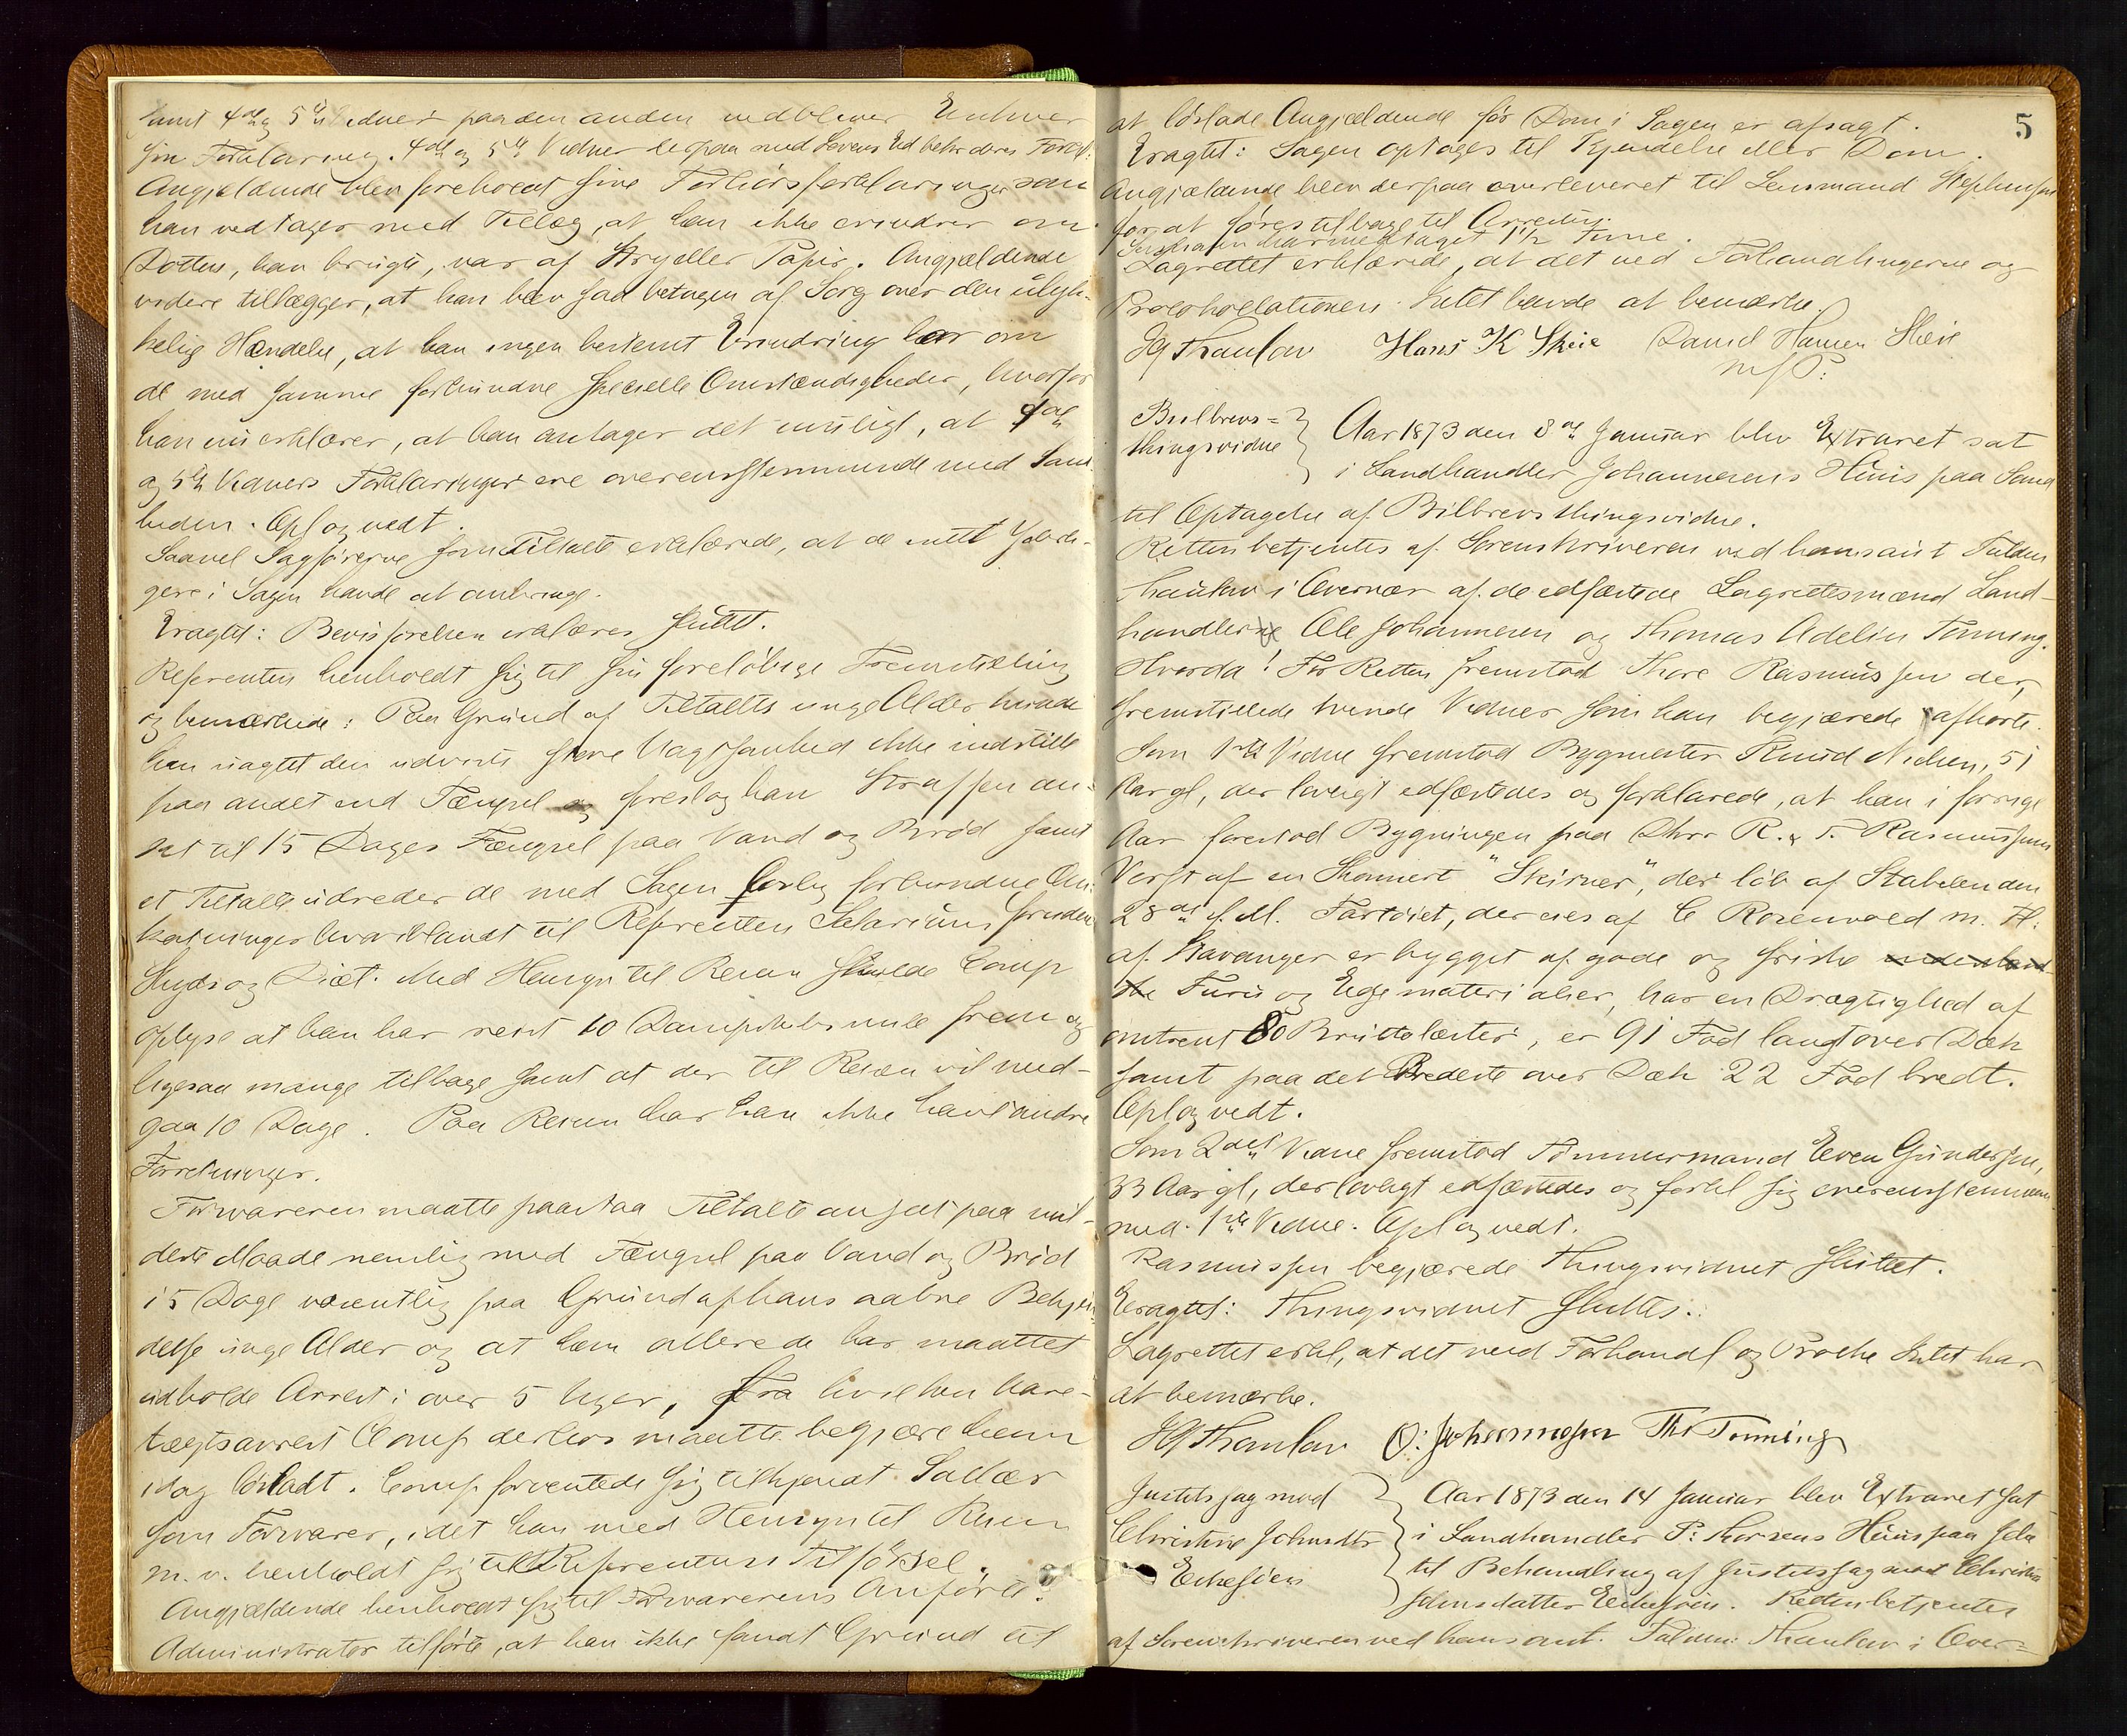 samt 4de og 5te Vidner paa den anden vedbliver Enhver
sin Forklaring. 4de og 5te Vidner med Lovens Ed bekr deres Forkl:
Angjældende blev foreholdt sine Forhørsforklaringer som
han vedtager med Tillæg, at han ikke erindrer om
Dotten, han brugte, var af Stry eller Papir. Angjældende
videre tillægger, at han blev saa betagen af Sorg over den ulyk-
kelige Hændelse, at han ingen bestemt Erindring har om
de med samme forbundne specielle Omstændigheder, hvorfor
han nu erklærer, at han antager det muligt, at 4de
og 5te Vidners Forklaringer ere overensstemmende med Sand
heden. Opl og vedt.
Saavel Sagførerne som Tiltalte erklærede, at de intet Yderli-
gere i Sagen havde at anbringe.
Eragtet: Bevisførelsen erklæres sluttet.
Referenten henholdt sig til sin foreløbige Fremstilling
og bemærkede: Paa Grund af Tiltaltes unge Alder turde
han uagtet den udviste store Uagtsomhed ikke indstille
paa andet end Fængsel og foreslog han Straffen an-
sat til 15 Dages Fængsel paa Vand og Brød samt
at Tiltalte udreder de med Sagen lovlig forbundne Om-
kostninger hvoriblandt til Referenten Salarium foruden
Skyds og Diæt. Med Hensyn til Reisen skulde Comp
oplyse at han har reist 10 Dampskibsmile frem og
ligesaa mange tilbage samt at der til Reisen vil med-
gaa 10 Dage. Paa Reisen har han ikke havt andre
Forretninger.
Forsvareren maatte paastaa Tiltalte anseet paa mil-
deste Maade nemlig med Fængsel paa Vand og Brød
i 5 Dage væsentlig paa Grund af hans aabne Bekjen
delse unge Alder og at ham allerede har maattet
udholde Arrest i over 5 Uger, fra hvilken Vare-
tægtsarrest Comp derhos maatte begjære ham
idag løsladt. Comp forventede sig tilkjendt Sallær
som Forsvarer, idet han med Hensyn til Reisen
m. v. henholdt sig til Referentens Tilførsel.
Angjældende henholdt sig til Forsvarerens Anførte.
Administrator tilførte, at han ikke fandt Grund til
5
at løslade Angjældende før Dom i Sagen er afsagt.
Eragtet: Sagen optages til Kjendelse eller Dom.
Angjældende blev derpaa overleveret til Lensmand Stephensen
for at føres tilbage til Arresten.
har medtaget 1½ Time.
Lagrettet erklærede, at det ved Forhandlingerne og
Protokollationen Intet havde at bemærke.
HGThaulow Hans K Skeie Daniel Hansen Skeie
m f P:
Bilbrevs=
thingsvidne
Aar 1873 den 8de Januar blev Extraret sat
i Landhandler Johannesens Huus paa Sand
til Optagelse af Bilbrevsthingsvidne.
Retten betjentes af Sorenskriveren ved hans aut Fuldm
Thaulow i Overvær af de edfæstede Lagrettesmænd Land-
handlerne Ole Johannesen og Thomas Adelin Tonning.
Hvorda! For Retten fremstod Thore Rasmussen der,
fremstillede tvende Vidner som han begjærede afhørte.
Som 1ste Vidne fremstod Bygmester Knud Nielsen, 51
Aar gl, der lovligt edfæstedes og forklarede, at han i forrige
Aar forestod Bygningen paa Dhrr R. & T. Rasmussens
Verft af en Skonnert "Skirner", der løb af Stabelen den
28de f. M. Fartøiet, der eies af C Rosenvold m. Fl.
af Stavanger er bygget af gode og friske
Furu og Ege materialier, har en Drægtighed af
omtrent 80 Bruttolæster, er 91 Fod langt over Dæk
samt paa det Bredeste over Dæk 22 Fod bredt.
Opl og vedt.
Som 2det Vidne fremstod Tømmermand Even Gundersen,
33 Aar gl, der lovligt edfæstedes og forkl sig overensstemmen
med 1ste Vidne. Opl og vedt.
Rasmussen begjærede Thingsvidnet sluttet.
Eragtet: Thingsvidnet sluttes.
Lagrettet erkl, at det ved Forhandl og Protke Intet har
at bemærke.
HGThaulow O: Johannesen Th: Tonning
Justitssag mod
Christine Johnsdtr
Eikesøien
Aar 1873 den 14 Januar blev Extraret sat
i Landhandler P: Thorsens Huus paa Jelsa
til Behandling af Justitssag mod Christine
Johnsdatter Eikesøien. Retten betjentes
af Sorenskriveren ved hans aut. Fuldm: Thaulow i Over=